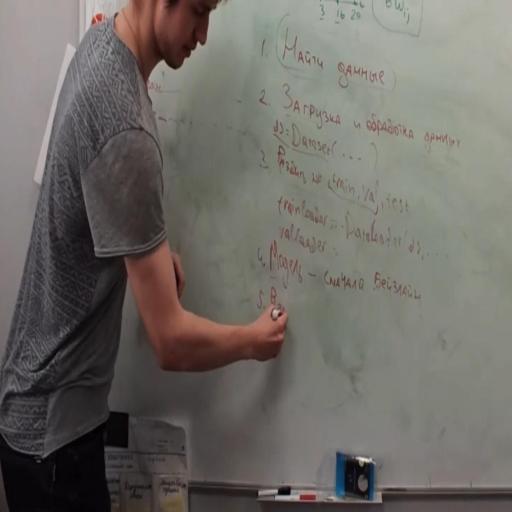 3 16 20
1. Найти данные
2. Загрузка и обработка данных
ds = Dataset(...)
3. train, val, test
trainloader = DataLoader(ds, ...
valloader =
4. Модель - сначала бейзлайн
5. В